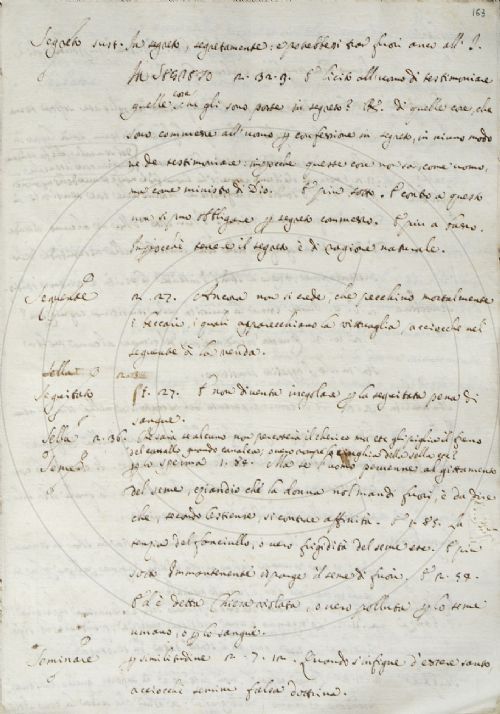 163
Segreto sust. In segreto, segretamente: e potrebbesi trar fuori anco all' I.
IN SEGRETO 2. 32. 9. È licito all' uomo di testimoniare
quelle cose che gli sono poste in segreto? Di quelle cose, che
sono commesse all' uomo, confessione in segreto, in niuno modo
ne de testimoniare: queste cose non sa, come uomo,
ma come ministro di Dio. E più sotto. E contro a questo
non si può obbligare segreto commesso. E più a basso.
Imperocchè tenere il segreto è di ragione naturale.
Seguente 2. 27. Ancora non si crede, che pecchino mortalmente
i beccari, i quali apparecchiano la vittuaglia, acciocchè nel
seguente dì la venda.
Seguitato 27. E non diventa irregolare la seguitata pena di
sangue.
Sella 2. 36. alcuno non percotesse il cherico ma
del cavallo, grondo cavalcasse, ovvero rompesse cinghia della sella
Seme lo sperma 1. 84. Ma se l' uomo pervenne al gittamento
del seme, eziandio che la donna nol mandi fuori, è da dire
che, secondo Ostiense, si contrae affinità. E 85. La
del fanciullo, o vero frigidità del seme ete. E più
sotto Immantenente isponge il seme di fuori. E 2. 54.
Ed è detta Chiesa violata, o vero polluta lo seme
umano, o lo sangue.
Seminare similitudine 2. 7. 12. Quando si infigne d' essere santo
acciocchè semini falsa dottrina.